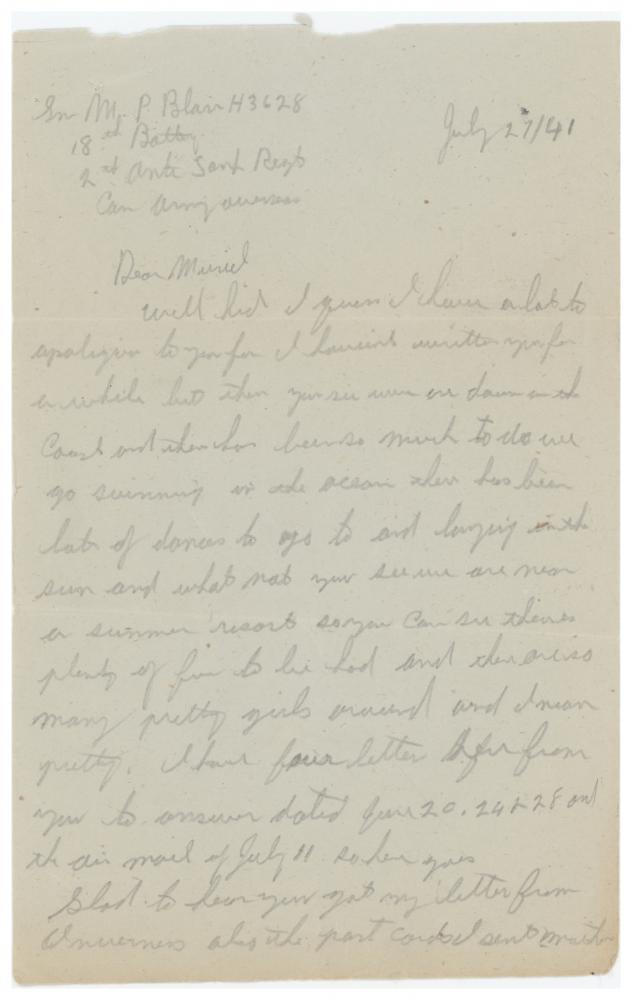 Gnr M. P. Blair H3628
18th Battery
2nd Anti Tank Regt
Can Army overseas
July 27/41
Dear Muriel
Well kid I guess I have a lot to
apoligize to you for I havent written you for
a while but then you see were are down on the
Coast and there has been so much to do we
go swimming in the ocean there has been
lots of dances to go to and laying in the
sun and what not you see we are near
a summer resort so you can see theres
plenty of fun to be had and there are so
many pretty girls around and I mean
pretty. I have four letter here from
you to answer dated June 20, 24 & 28 and
the air mail of July 11 so here goes
Glad to hear you got my letter from
Inverness also the post cards I sent